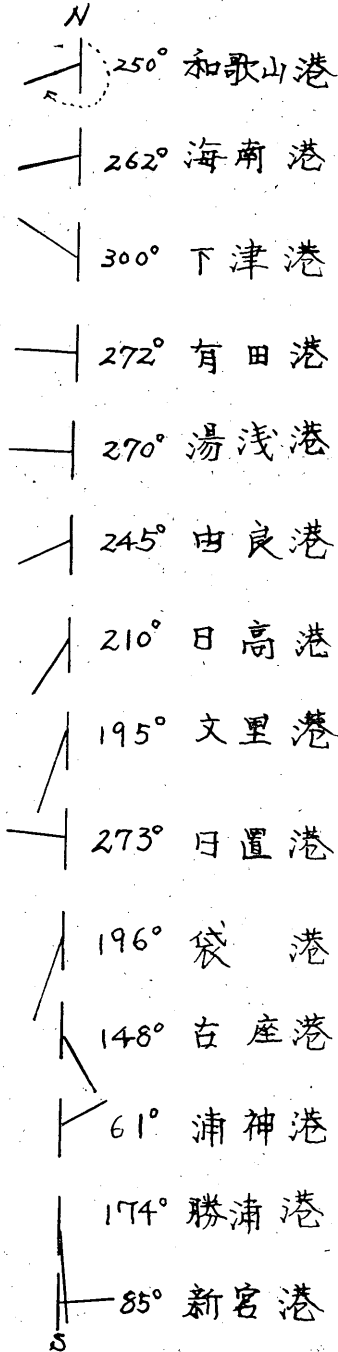 N
250° 和歌山港
262° 海南港
300° 下津港
272° 有田港
270° 湯浅港
245° 由良港
210° 日高港
195° 文里港
273° 日置港
196° 袋 港
148° 古座港
61° 浦神港
174° 勝浦港
85° 新宮港
S